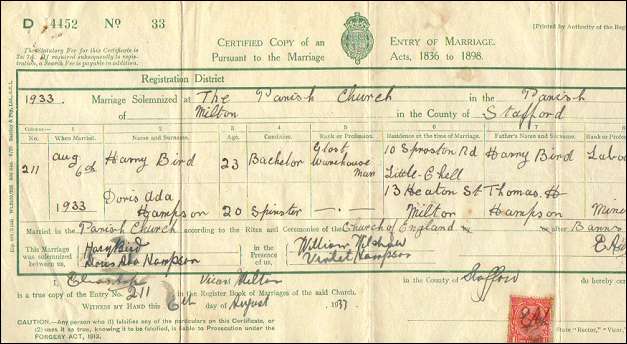 D 4452 No 33
[Printed by Authority of the Reg
The Statutory Fee for this Certificate is
2s. 7d. If required subsequently to regist-
ration, a Search Fee is payable in addition.
CERTIFIED COPY OF AN ENTRY OF MARRIAGE.
PURSUANT TO THE MARRIAGE ACTS, 1836 TO 1898.
Registration District
1933. Marriage Solemnized at The Parish Church in the Parish
of Milton in the County of Stafford
No. When Married. Name and Surname. Age. Condition. Rank or Profession. Residence at the time of Marriage. Father's Name and Surname. Rank or Profes
211 Aug 6th 1933 Harry Bird 23 Bachelor Glost Warehouse Man 10 Sproston Rd Little Chell Harry Bird Labo
Doris Ada Hampson 20 Spinster — . — 13 Heaton St Milton Thomas H Hampson Mine
Married in the Parish Church according to the Rites and Ceremonies of the Church of England after Banns
This Marriage was solemnized between us, Harry Bird Doris Ada Hampson in the Presence of us, William Violet Hampson
I, Vicar Milton in the County of Stafford do hereby cer
is a true copy of the Entry No. 211 in the Register Book of Marriages of the said Church.
WITNESS MY HAND this 6th day of August 1933
CAUTION.—Any person who (1) falsifies any of the particulars on this Certificate, or
(2) uses it as true, knowing it to be falsified, is liable to Prosecution under the
FORGERY ACT, 1913.
State "Rector," "Vicar,"